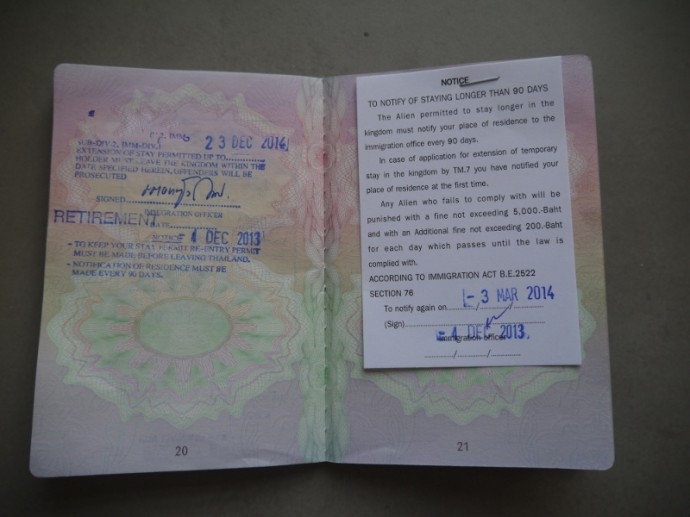 23 DEC 2014
SUB-DIV.2, IMM-DIV.1
EXTENSION OF STAY PERMITTED UP TO
HOLDER MUST LEAVE THE KINGDOM WITHIN THE
DATE SPECIFIED HEREIN, OFFENDERS WILL BE
PROSECUTED
SIGNED
IMMIGRATION OFFICER
RETIREMENT
DATE
- 4 DEC 2013
- TO KEEP YOUR STAY PERMIT RE-ENTRY PERMIT
MUST BE MADE BEFORE LEAVING THAILAND.
- NOTIFICATION OF RESIDENCE MUST BE
MADE EVERY 90 DAYS.
20
NOTICE
TO NOTIFY OF STAYING LONGER THAN 90 DAYS
The Alien permitted to stay longer in the
kingdom must notify your place of residence to the
immigration office every 90 days.
In case of application for extension of temporary
stay in the kingdom by TM.7 you have notified your
place of residence at the first time.
Any Alien who fails to comply with will be
punished with a fine not exceeding 5,000.-Baht
and with an Additional fine not exceeding 200.-Baht
for each day which passes until the law is
complied with.
ACCORDING TO IMMIGRATION ACT B.E.2522
SECTION 76
To notify again on - 3 MAR 2014
(Sign)
- 4 DEC 2013
Immigration officer
...../...../.....
21